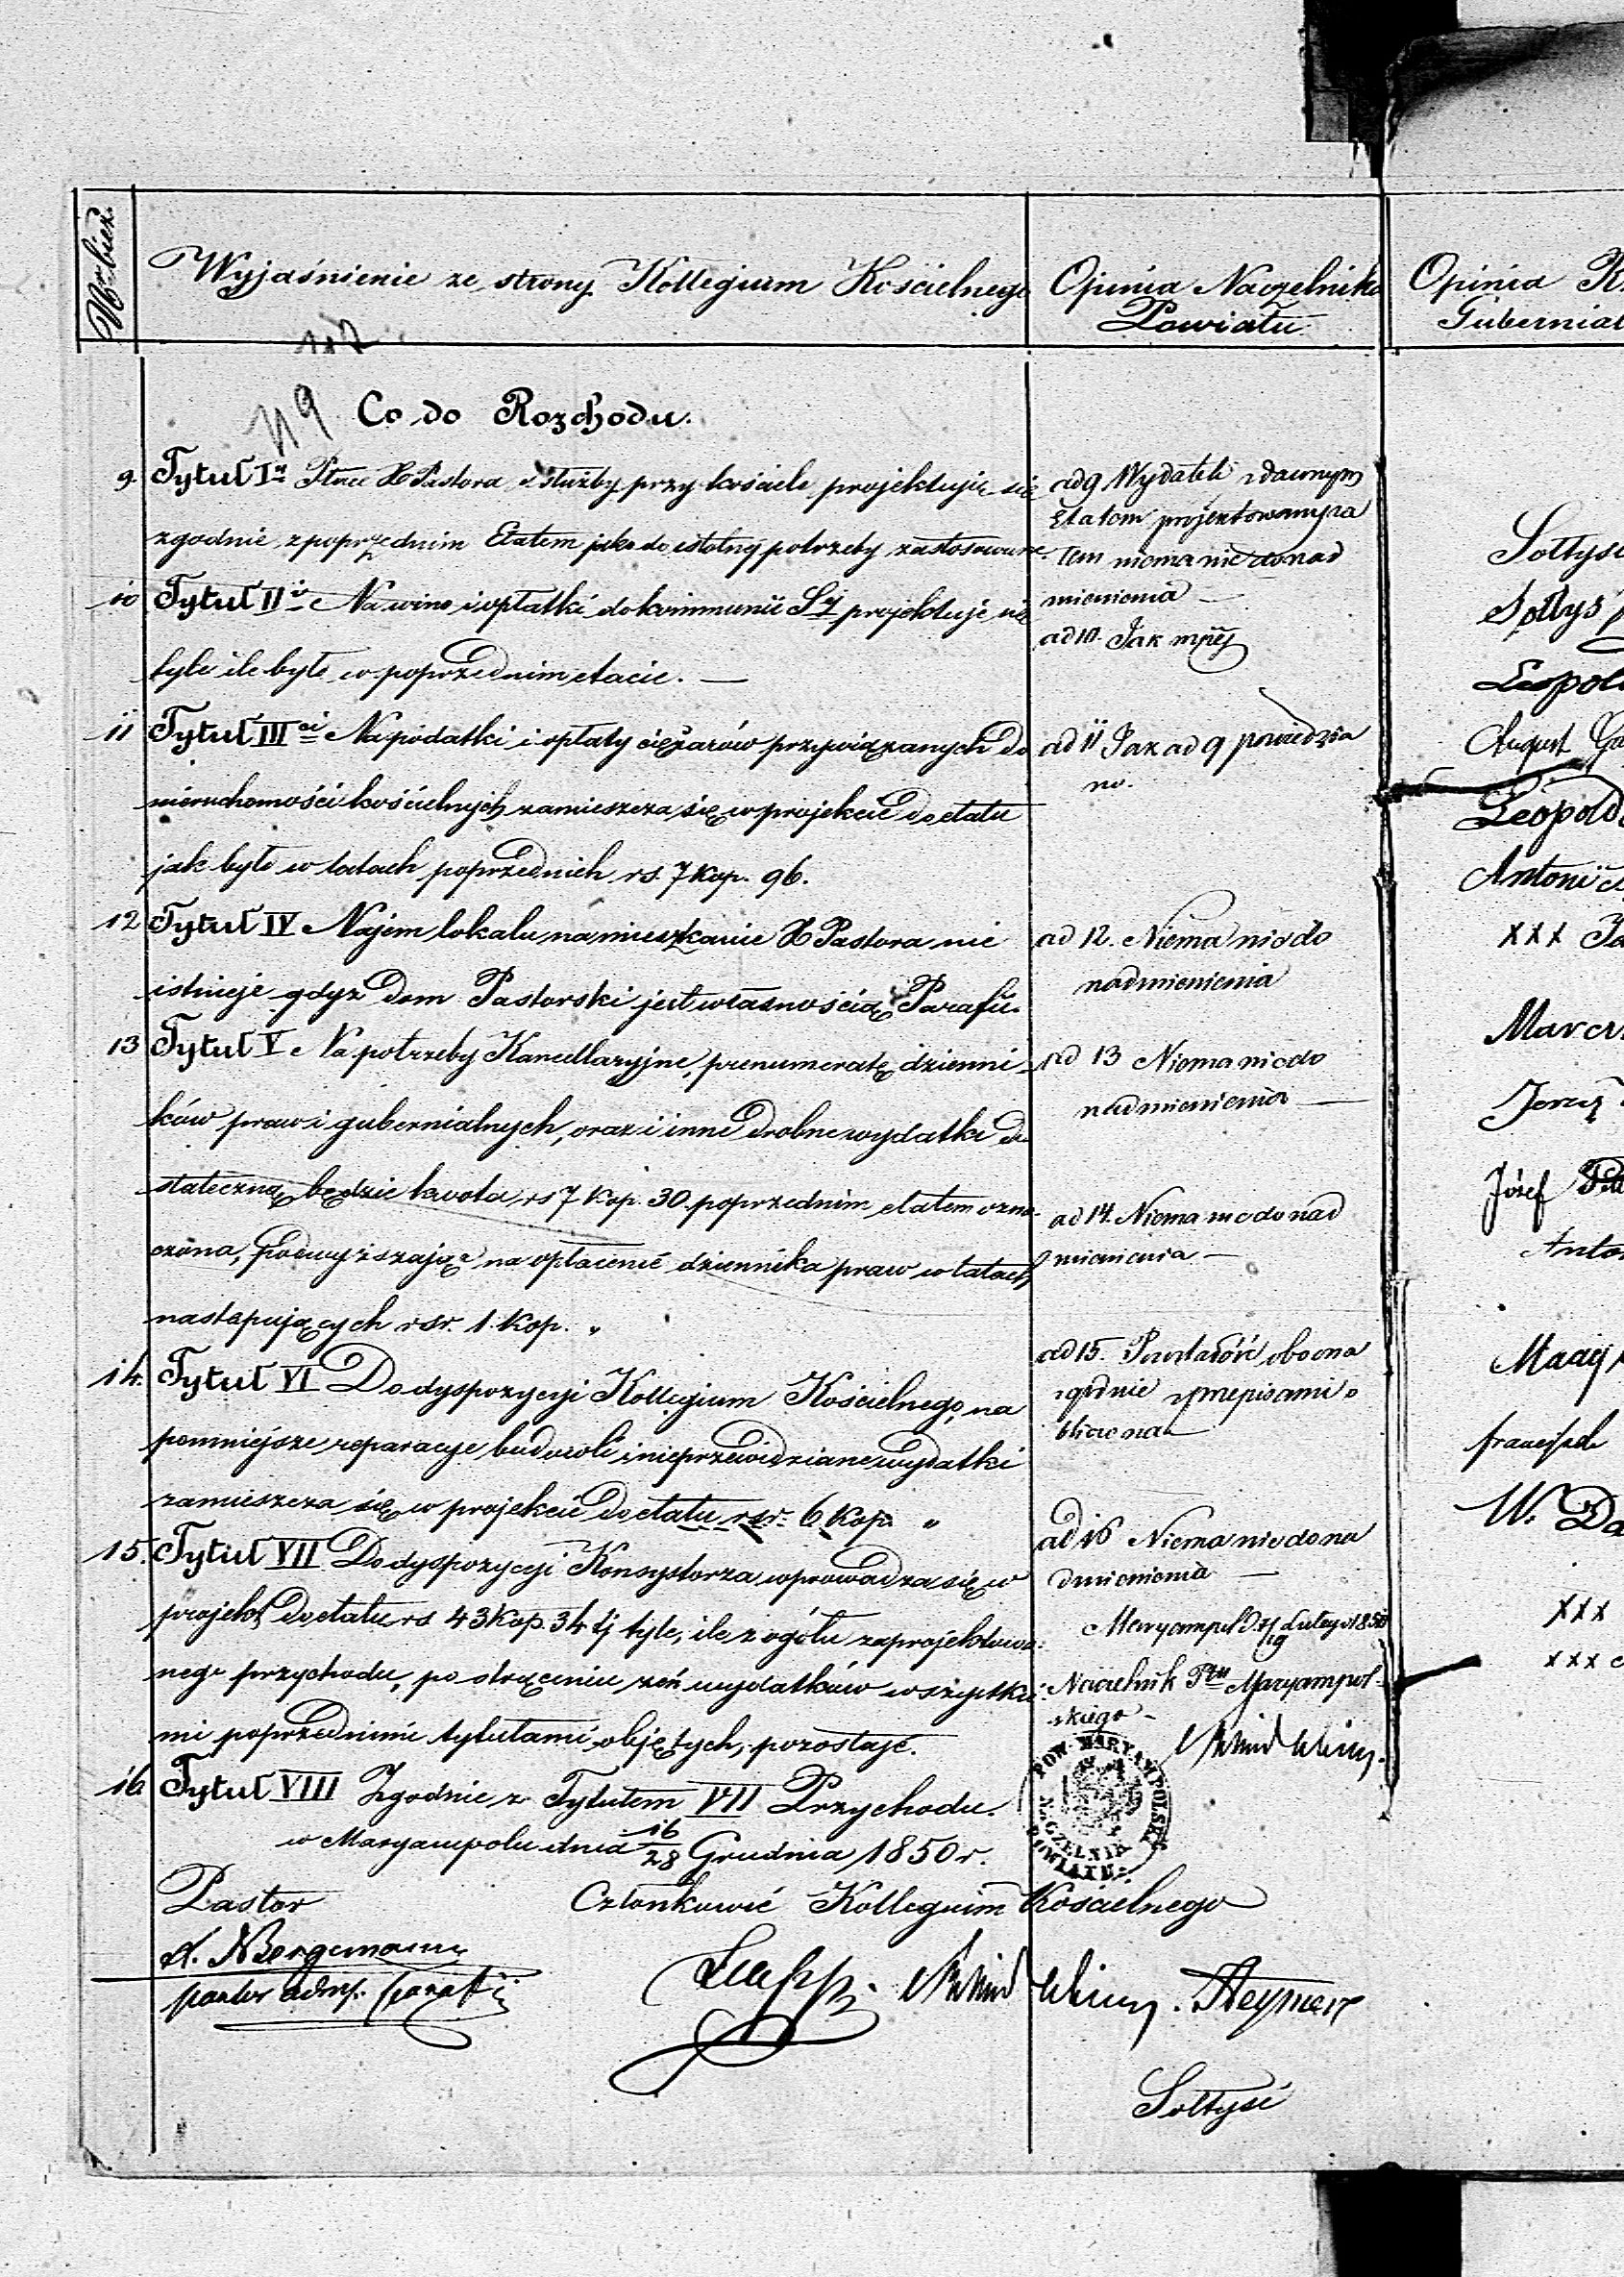 Nr bież.
Wyjaśnienie ze strony Kollegium Kościelnego
Opinia Naczelnika
Powiatu.
Opinia R
Gubernial
107
119
Co do Rozchodu.
9. Tytuł I Płace X Pastora i służby przy kościele projektuje się
zgodnie z poprzednim Etatem jako do istotnej potrzeby zastosowane.
10 Tytuł II Na wino i opłatki do kommunii Sj projektuje się
tyle ile było w poprzednim etacie. —
11 Tytuł III ci Na podatki i opłaty ciężarów przywiązanych do
nieruchomości kościelnych zamieszcza się w projekcie do etatu
jak było w latach poprzednich rs. 7 kop. 96.
12 Tytuł IV Najem lokalu na mieszkanie X Pastora nie
istnieje gdyż dom Pastorski jest własnością Parafii.
13 Tytuł V Na potrzeby Kancellaryjne, prenumeratę dzienni-
ków praw i gubernialnych, oraz i inne drobne wydatki do
stateczną będzie kwota rs 7 kop. 30. poprzednim etatem ozna-
czona, podwyższając na opłacenie dziennika praw w latach
następujących rsr. 1. kop. "
14. Tytuł VI Do dyspozycyi Kollegium Kościelnego, na
pomniejsze reparacye budowli i nieprzewidziane wydatki
zamieszcza się w projekcie do etatu rsr. 6 kop. "
15. Tytuł VII Do dyspozycyi Konsystorza wprowadza się w
projekt do etatu rs 43 kop. 34 tj tyle, ile z ogółu zaprojektowa-
nego przychodu, po strąceniu zeń wydatków wszystkie-
mi poprzedniemi tytułami objętych, pozostaje.
16 Tytuł VIII Zgodnie z Tytułem VII Przychodu.
w Maryampolu dnia 16/28 Grudnia 1850 r.
Pastor
Członkowie Kollegium Kościelnego
A. Bergemann
pastor adm. parafii
Sołtysi
ad 9 Wydatek z dawnym
Etatem projektowany za
tem niema nic do nad
mienienia —
ad 10. Jak wyżej
ad 11 Jak ad 9 powiedzia
no.
ad 12. Niema nic do
nadmienienia
ad 13 Niema nic do
nadmienienia —
ad 14. Niema nic do nad
mienienia —
ad 15. Pozostałość obecna
zgodnie z przepisami o
bliczona
ad 16 Niema nic do na
dmienienia —
Maryampol d. 7/19 Lutego 1851
Naczelnik Ptu Maryampol-
skiego —
POW. MARYAMPOLSKI
NACZELNIK
POWIATU
Sołtysi
Sołtys
Leopol
August
Leopold
Antoni
XXX
Marci
Jerzy
Józef
Anto
Maciej
W. Da
XXX
XXX